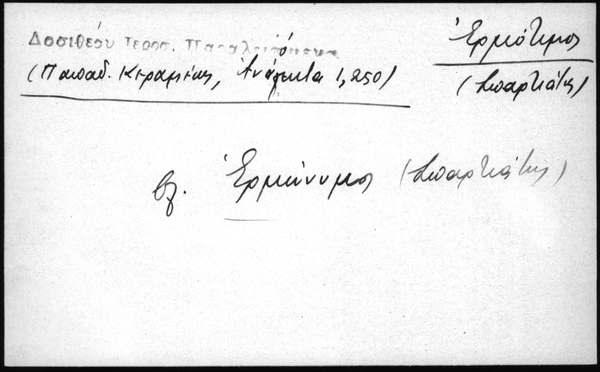 Δοσιθέου Ιεροσ. Παραλειπόμενα
(Παπαδ. Κεραμέως, Ἀνάλεκτα 1,250)
Ἑρμότιμος
(Σπαρτιάτης)
βλ. Ἑρμώνυμος (Σπαρτιάτης)